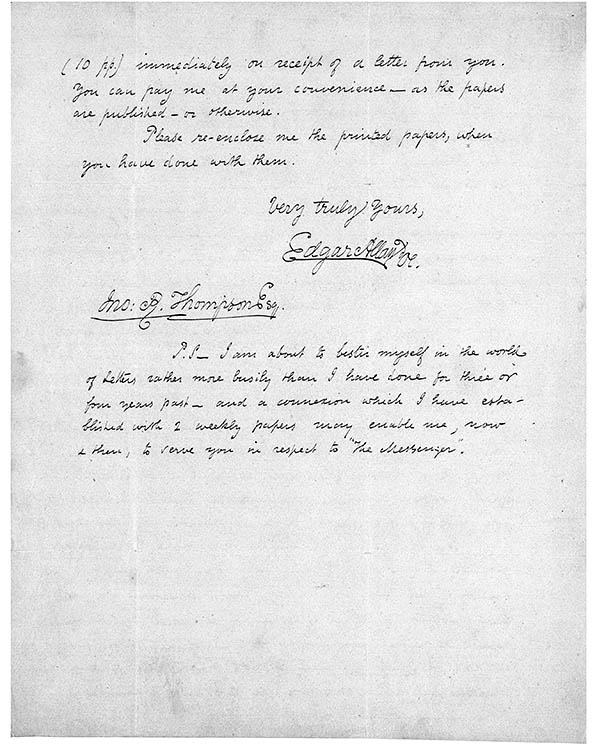 (10 pp) immediately on receipt of a letter from you.
You can pay me at your convenience — as the papers
are published — or otherwise.
Please re-enclose me the printed papers, when
you have done with them.
Very truly Yours,
Edgar Allan Poe.
Jno: R. Thompson Esq.
P.S — I am about to bestir myself in the world
of Letters rather more busily than I have done for three or
four years past — and a connexion which I have esta-
blished with 2 weekly papers may enable me, now
& then, to serve you in respect to "The Messenger".